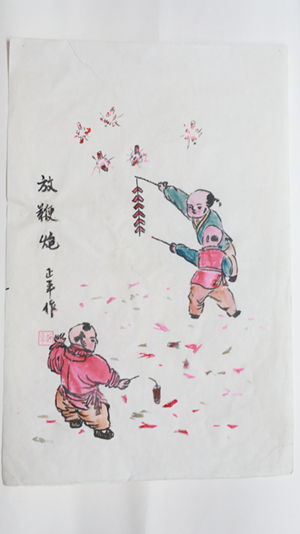 放鞭炮
正平作